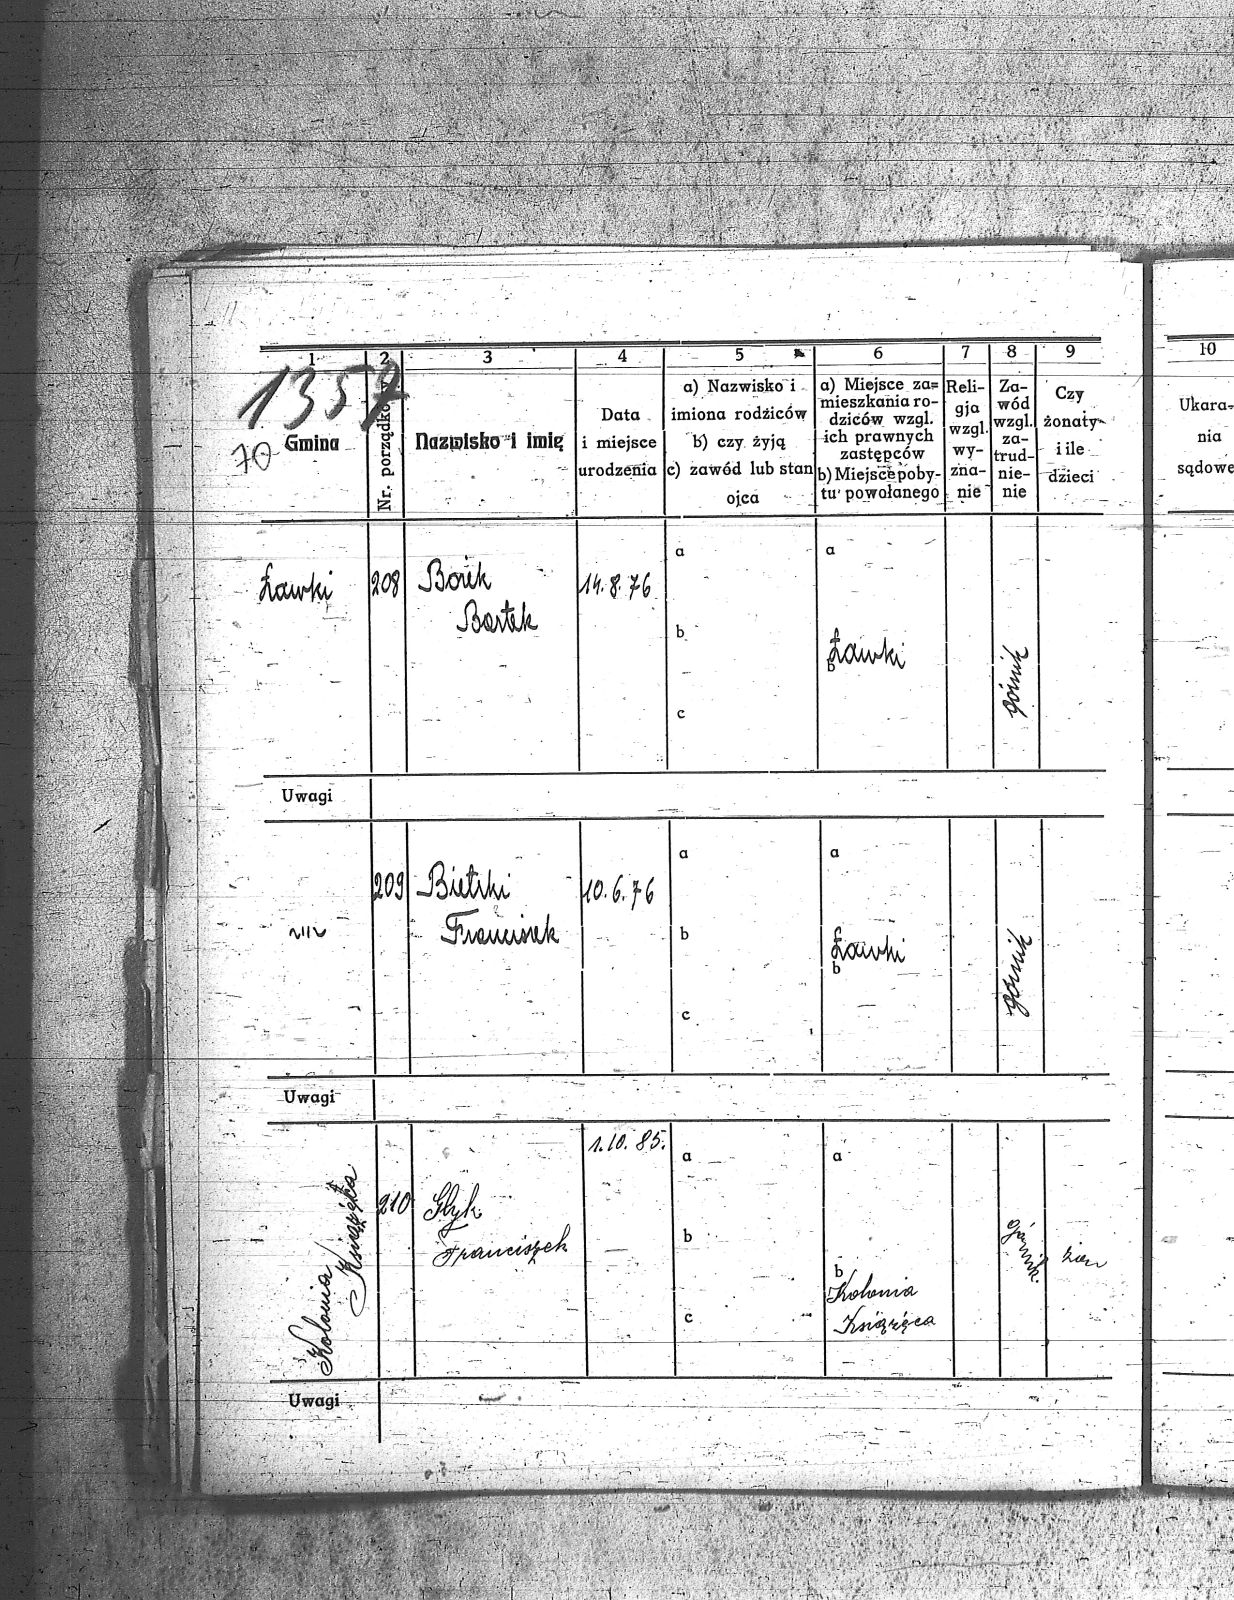 1 2 3 4 5 6 7 8 9 10
1357
70
Gmina
Nr. porządkowy
Nazwisko i imię
Data
i miejsce
urodzenia
a) Nazwisko i
imiona rodziców
b) czy żyją
c) zawód lub stan
ojca
a) Miejsce za=
mieszkania ro-
dziców wzgl.
ich prawnych
zastępców
b) Miejsce poby-
tu powołanego
Reli-
gja
wzgl.
wy-
zna-
nie
Za-
wód
wzgl.
za-
trud-
nie-
nie
Czy
żonaty
i ile
dzieci
Ukara-
nia
sądowe
Ławki
208
Borek
Bartek
14.8.76
a
b
c
a
Ławki
b
górnik
Uwagi
209
Bielski
Franciszek
10.6.76
a
b
c
a
Ławki
b
górnik
Uwagi
Kolonia
Książęca
210
Franciszek
1.10.85.
a
b
c
a
b
Kolonia
Książęca
górnik.
żon
Uwagi